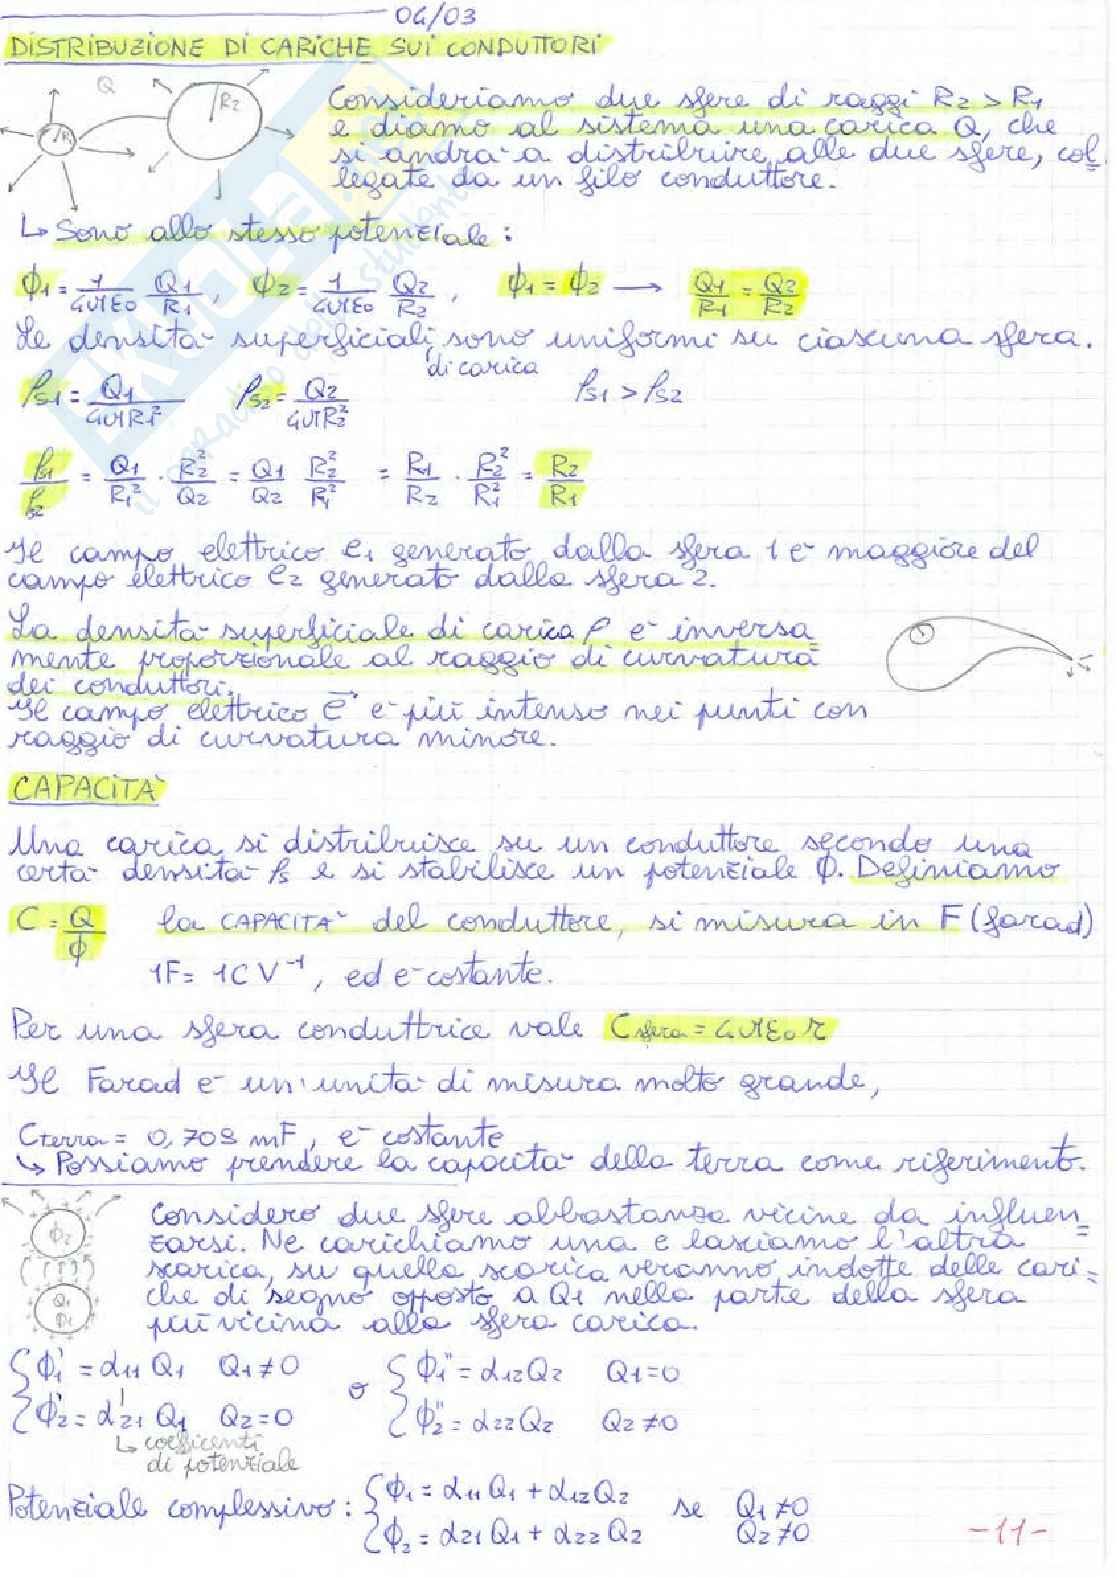 04/03
DISTRIBUZIONE DI CARICHE SUI CONDUTTORI
Q
R1
R2
Consideriamo due sfere di raggi R2 > R1
e diamo al sistema una carica Q, che
si andrà a distribuire alle due sfere, col
legate da un filo conduttore.
↳ Sono allo stesso potenziale:
ϕ1 = 1/4πε0 Q1/R1, ϕ2 = 1/4πε0 Q2/R2, ϕ1 = ϕ2 → Q1/R1 = Q2/R2
Le densità superficiali sono uniformi su ciascuna sfera.
di carica
ρs1 = Q1/4πR1² ρs2 = Q2/4πR2² ρs1 > ρs2
ρs1/ρs2 = Q1/R1² · R2²/Q2 = Q1/Q2 R2²/R1² = R1/R2 · R2²/R1² = R2/R1
Il campo elettrico e1 generato dalla sfera 1 è maggiore del
campo elettrico e2 generato dalla sfera 2.
La densità superficiale di carica ρ è inversa
mente proporzionale al raggio di curvatura
dei conduttori.
Il campo elettrico e⃗ è più intenso nei punti con
raggio di curvatura minore.
CAPACITÀ
Una carica si distribuisce su un conduttore secondo una
certa densità ρs e si stabilisce un potenziale ϕ. Definiamo
C = Q/ϕ la CAPACITÀ del conduttore, si misura in F (farad)
1F = 1C V⁻¹, ed è costante.
Per una sfera conduttrice vale Csfera = 4πε0 r
Il Farad è un'unità di misura molto grande,
Cterra = 0,708 mF, è costante
↳ Possiamo prendere la capacità della terra come riferimento.
ϕ2
Q1
ϕ1
Considero due sfere abbastanza vicine da influen=
zarsi. Ne carichiamo una e lasciamo l'altra
scarica, su quella scarica veranno indotte delle cari=
che di segno opposto a Q1 nella parte della sfera
più vicina alla sfera carica.
{ϕ1' = α11 Q1 Q1 ≠ 0 o {ϕ1'' = α12 Q2 Q1 = 0
{ϕ2' = α21 Q1 Q2 = 0 {ϕ2'' = α22 Q2 Q2 ≠ 0
↳ coefficenti
di potenziale
Potenziale complessivo: {ϕ1 = α11 Q1 + α12 Q2 se Q1 ≠ 0
{ϕ2 = α21 Q1 + α22 Q2 Q2 ≠ 0
-11-